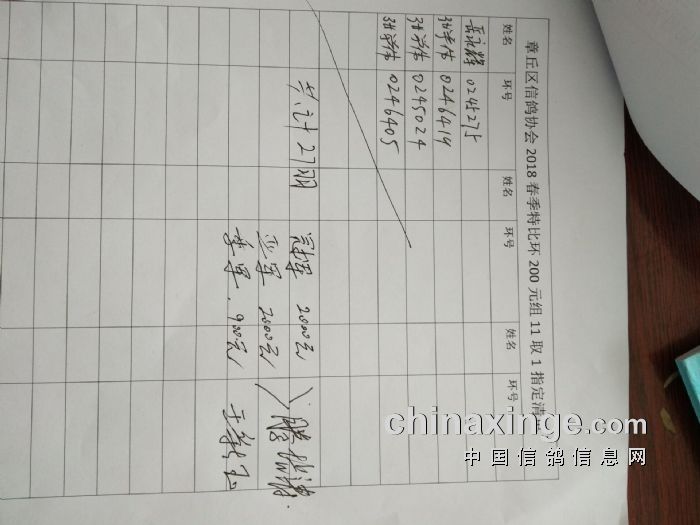 章丘区信鸽协会2018春季特比环200元组11取1指定清
姓名 环号 姓名 环号 姓名 环号
0245275
0246419
0245024
0246405
共计27羽
冠军 2000元
亚军 2000元
季军 900元
chinaxinge.com
中国信鸽信息网